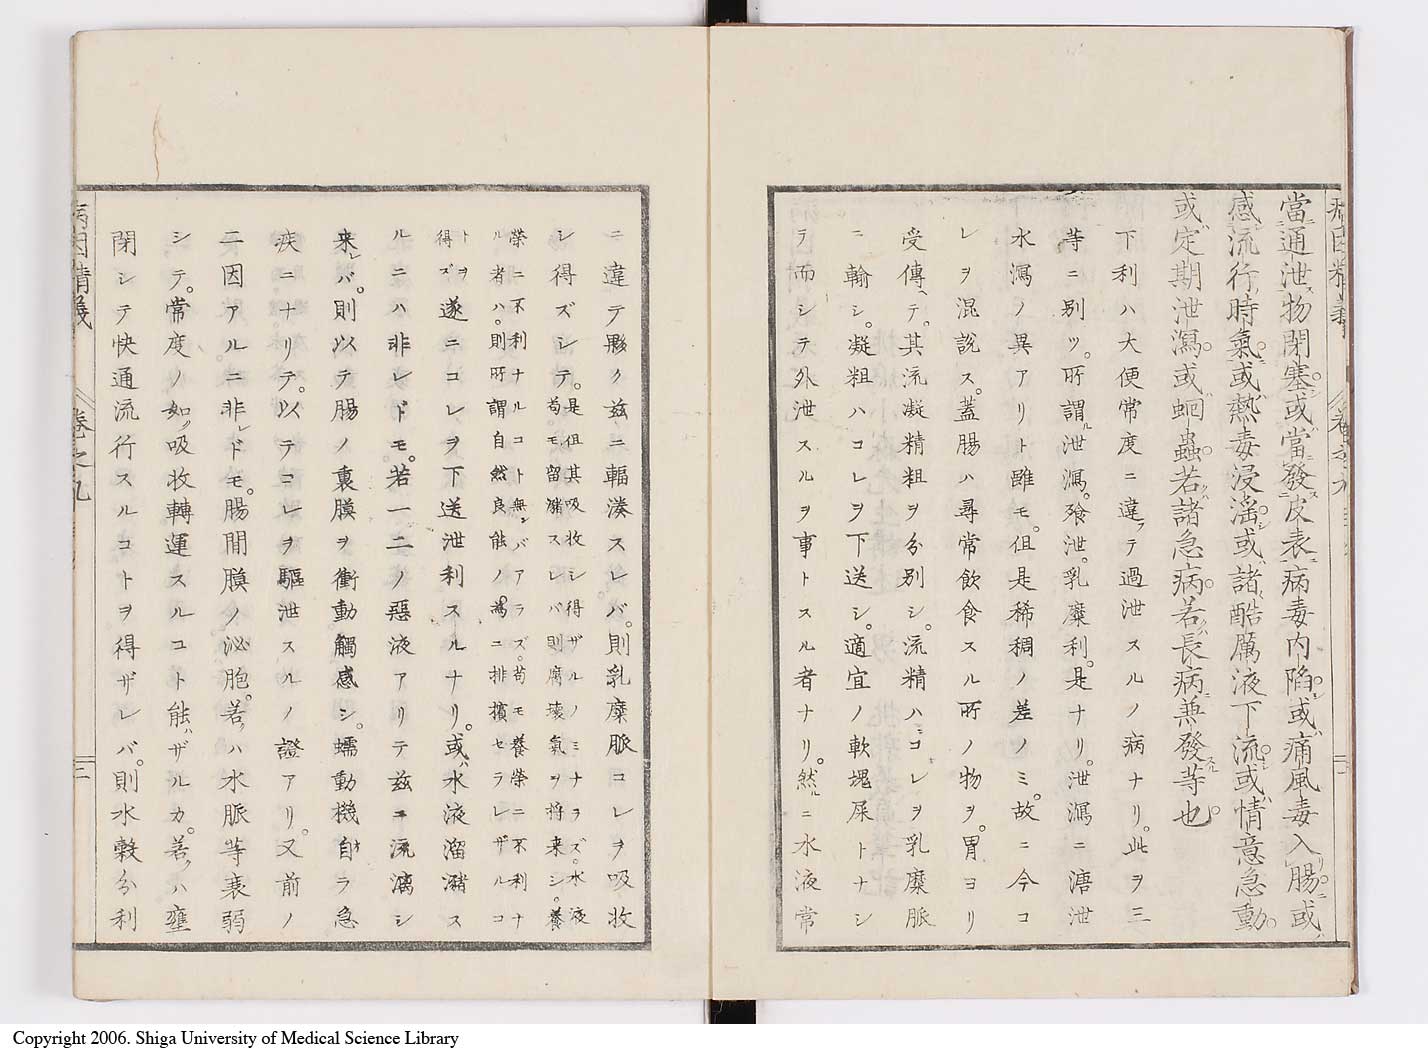 病因精義 卷之九
當通泄物閉塞或當發皮表病毒内陷或痛風毒入腸或
感流行時氣或熱毒浸淫或諸酷厲液下流或情意急動
或定期泄瀉或蛔蟲若諸急病若長病兼發等也
下利ハ大便常度ニ違テ過泄スルノ病ナリ。此ヲ三
等ニ別ツ。所謂泄瀉。飱泄。乳糜利。是ナリ。泄瀉ニ溏泄
水瀉ノ異アリト雖モ。但是稀稠ノ差ノミ。故ニ今コ
レヲ混説ス。蓋腸ハ尋常飲食スル所ノ物ヲ。胃ヨリ
受傳ヘテ。其流凝精粗ヲ分別シ。流精ハコレヲ乳糜脈
ニ輸シ。凝粗ハコレヲ下送シ。適宜ノ軟塊屎トナシ
テ而シテ外泄スルヲ事トスル者ナリ。然ルニ水液常
ニ違テ夥ク茲ニ輻湊スレバ。則乳糜脈コレヲ吸收
シ得ズシテ。是但其吸收シ得ザルノミナラズ。水液
苟モ留瀦スレバ則腐壞氣ヲ將来シ。養
榮ニ不利ナルコト無ンバアラズ。苟モ養榮ニ不利ナ
ル者ハ。則所謂自然良能ノ為ニ排擯セラレザルコ
トヲ
得ズ 遂ニコレヲ下送泄利スルナリ。或ハ水液溜瀦ス
ルニハ非レドモ。若一二ノ惡液アリテ茲ニ流漓シ
来レバ。則以テ腸ノ裏膜ヲ衝動觸感シ。蠕動機自ラ急
疾ニナリテ。以テコレヲ驅泄スルノ證アリ。又前ノ
二因アルニ非レドモ。腸間膜ノ泌胞。若ハ水脈等衰弱
シテ。常度ノ如ク吸收轉運スルコト能ハザルカ。若ハ壅
閉シテ快通流行スルコトヲ得ザレバ。則水穀分利
病因精義 卷之九 二
Copyright 2006. Shiga University of Medical Science Library